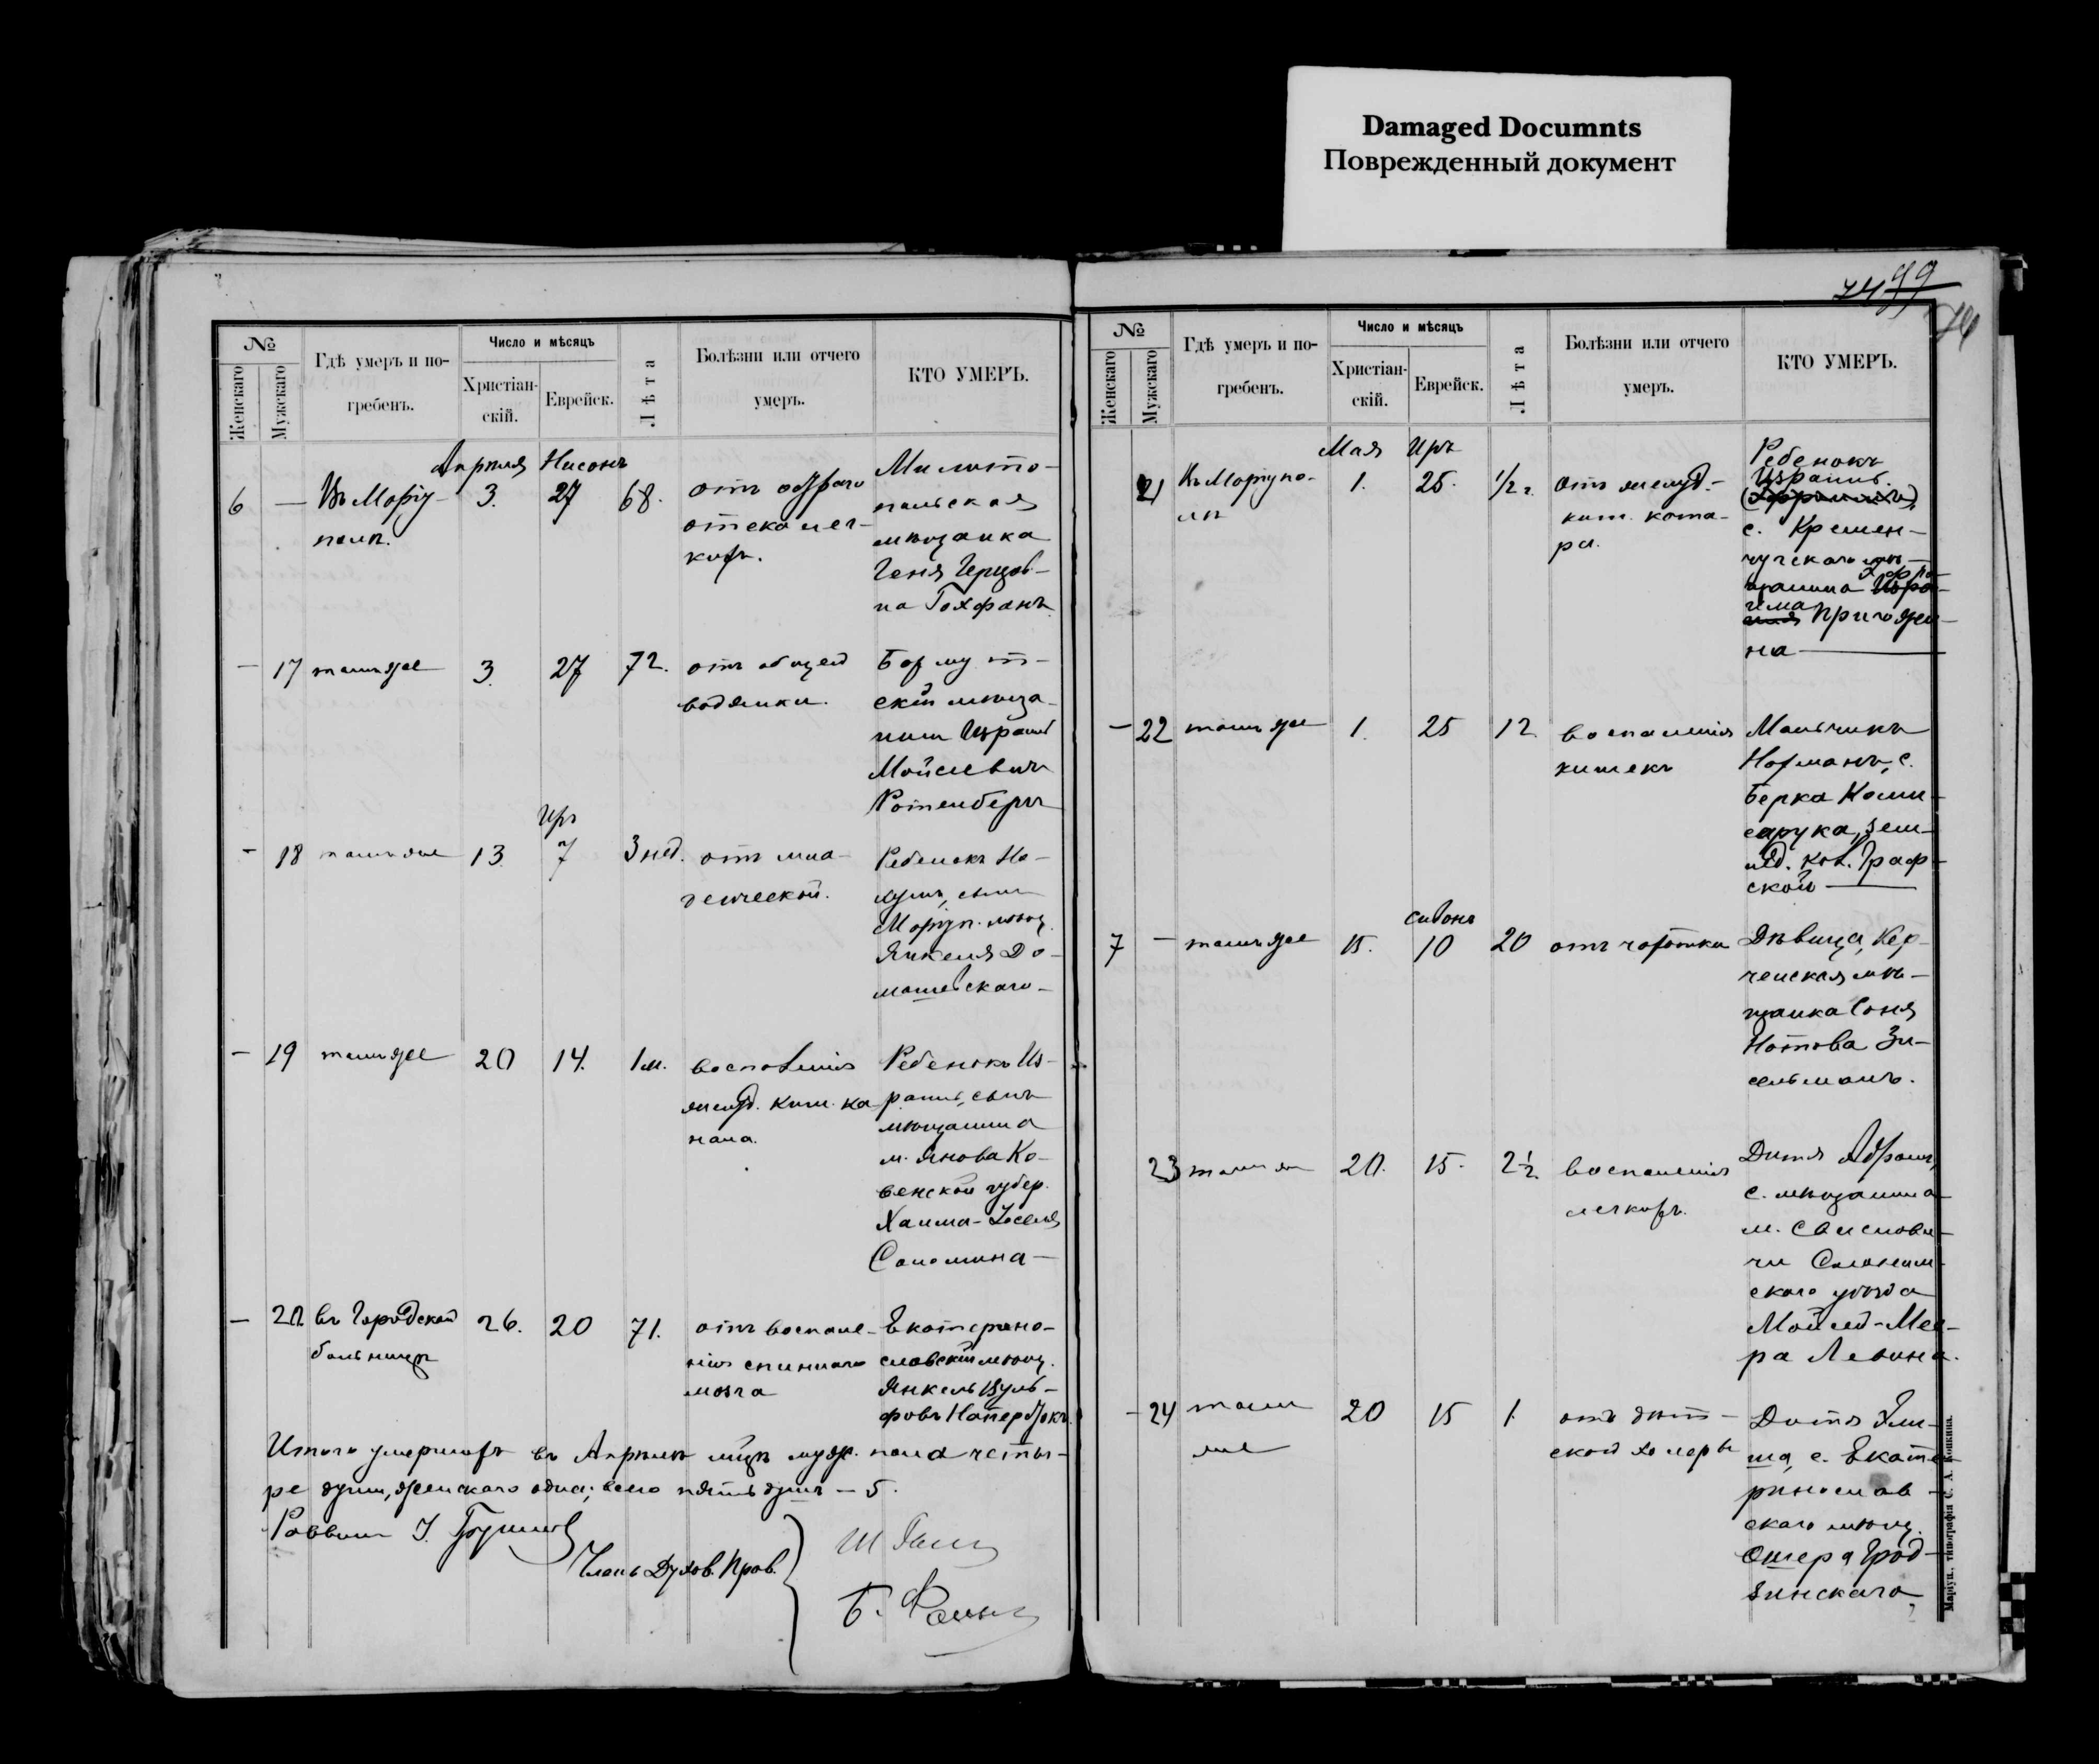 Damaged Documnts
Поврежденный документ
№
Женскаго
Мужскаго
Гдѣ умеръ и по-
гребенъ.
Число и мѣсяцъ
Христіан-
скій.
Еврейск.
Лѣта
Болѣзни или отчего
умеръ.
КТО УМЕРЪ.
Апрѣля Нисонъ
6 — Въ Маріу-
полѣ.
3. 27 68.
отъ остраго
отека лег-
кихъ.
Мелито-
польская
мѣщанка
Геня Герцов-
на Гохфанъ
— 17 тамъ же 3. 27 72.
отъ общей
водянки.
мѣща-
нинъ Израиль
Мойсеевичъ
Ротенбергъ
Иръ
— 18 тамъ же 13. 7 3 нед.
Ребенокъ На-
хумъ, сынъ
Маріуп. мѣщ.
Янкеля До-
машевскаго —
— 19 тамъ же 20 14. 1 м.
воспаленія
желуд. киш. ка-
нала.
Ребенокъ Из-
раиль, сынъ
мѣщанина
м. Янова Ко-
венской губер.
Хаима-Іоселя
Соломина —
— 20. въ Городской
больницѣ
26. 20 71.
отъ воспале-
нія спиннаго
мозга
Екатерино-
славскій мѣщ.
Янкель Вуль-
фовъ
Итого умершихъ въ Апрѣлѣ мцѣ муж. пола четы-
ре души, женскаго одна; всего пять душъ — 5.
Раввинъ
Члены Духов. Прав.
74 99
74
№
Женскаго
Мужскаго
Гдѣ умеръ и по-
гребенъ.
Число и мѣсяцъ
Христіан-
скій.
Еврейск.
Лѣта
Болѣзни или отчего
умеръ.
КТО УМЕРЪ.
Мая Иръ
21 Въ Маріупо-
лѣ
1. 25. 1/2 г.
Отъ желуд.-
киш. ката-
ра.
Ребенокъ
Израиль
с. Кремен-
чугскаго мѣ-
щанина Эфро-
има Пригожи-
на —
— 22 тамъ же 1. 25 12.
воспаленія
кишекъ
Мальчикъ
Нахманъ, с.
Берка Коми-
сарука, зем-
лед. кол. Граф-
ской —
Сивонъ
7 — тамъ же 15. 10 20 отъ чахотки
Дѣвица, Кер-
ченская мѣ-
щанка Соня
Нотова Зи-
сельманъ.
23 тамъ же 20. 15. 2 1/2.
воспаленія
легкихъ.
Дитя Абрамъ,
с. мѣщанина
м. Свислови-
чи Слоним-
скаго уѣзда
Мойсей-Мее-
ра Левина.
— 24 тамъ
же
20 15 1.
отъ дѣт-
ской холеры
Дитя Эли-
ша, с. Екате-
ринослав-
скаго мѣщ.
Ошера Грод-
зинскаго,
Маріуп., типографія С. А. Копкина.